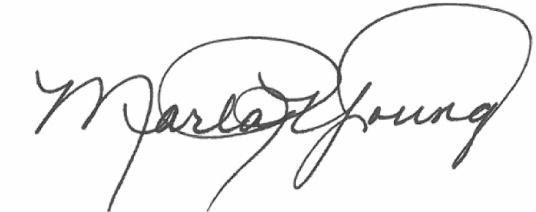 Marla Young